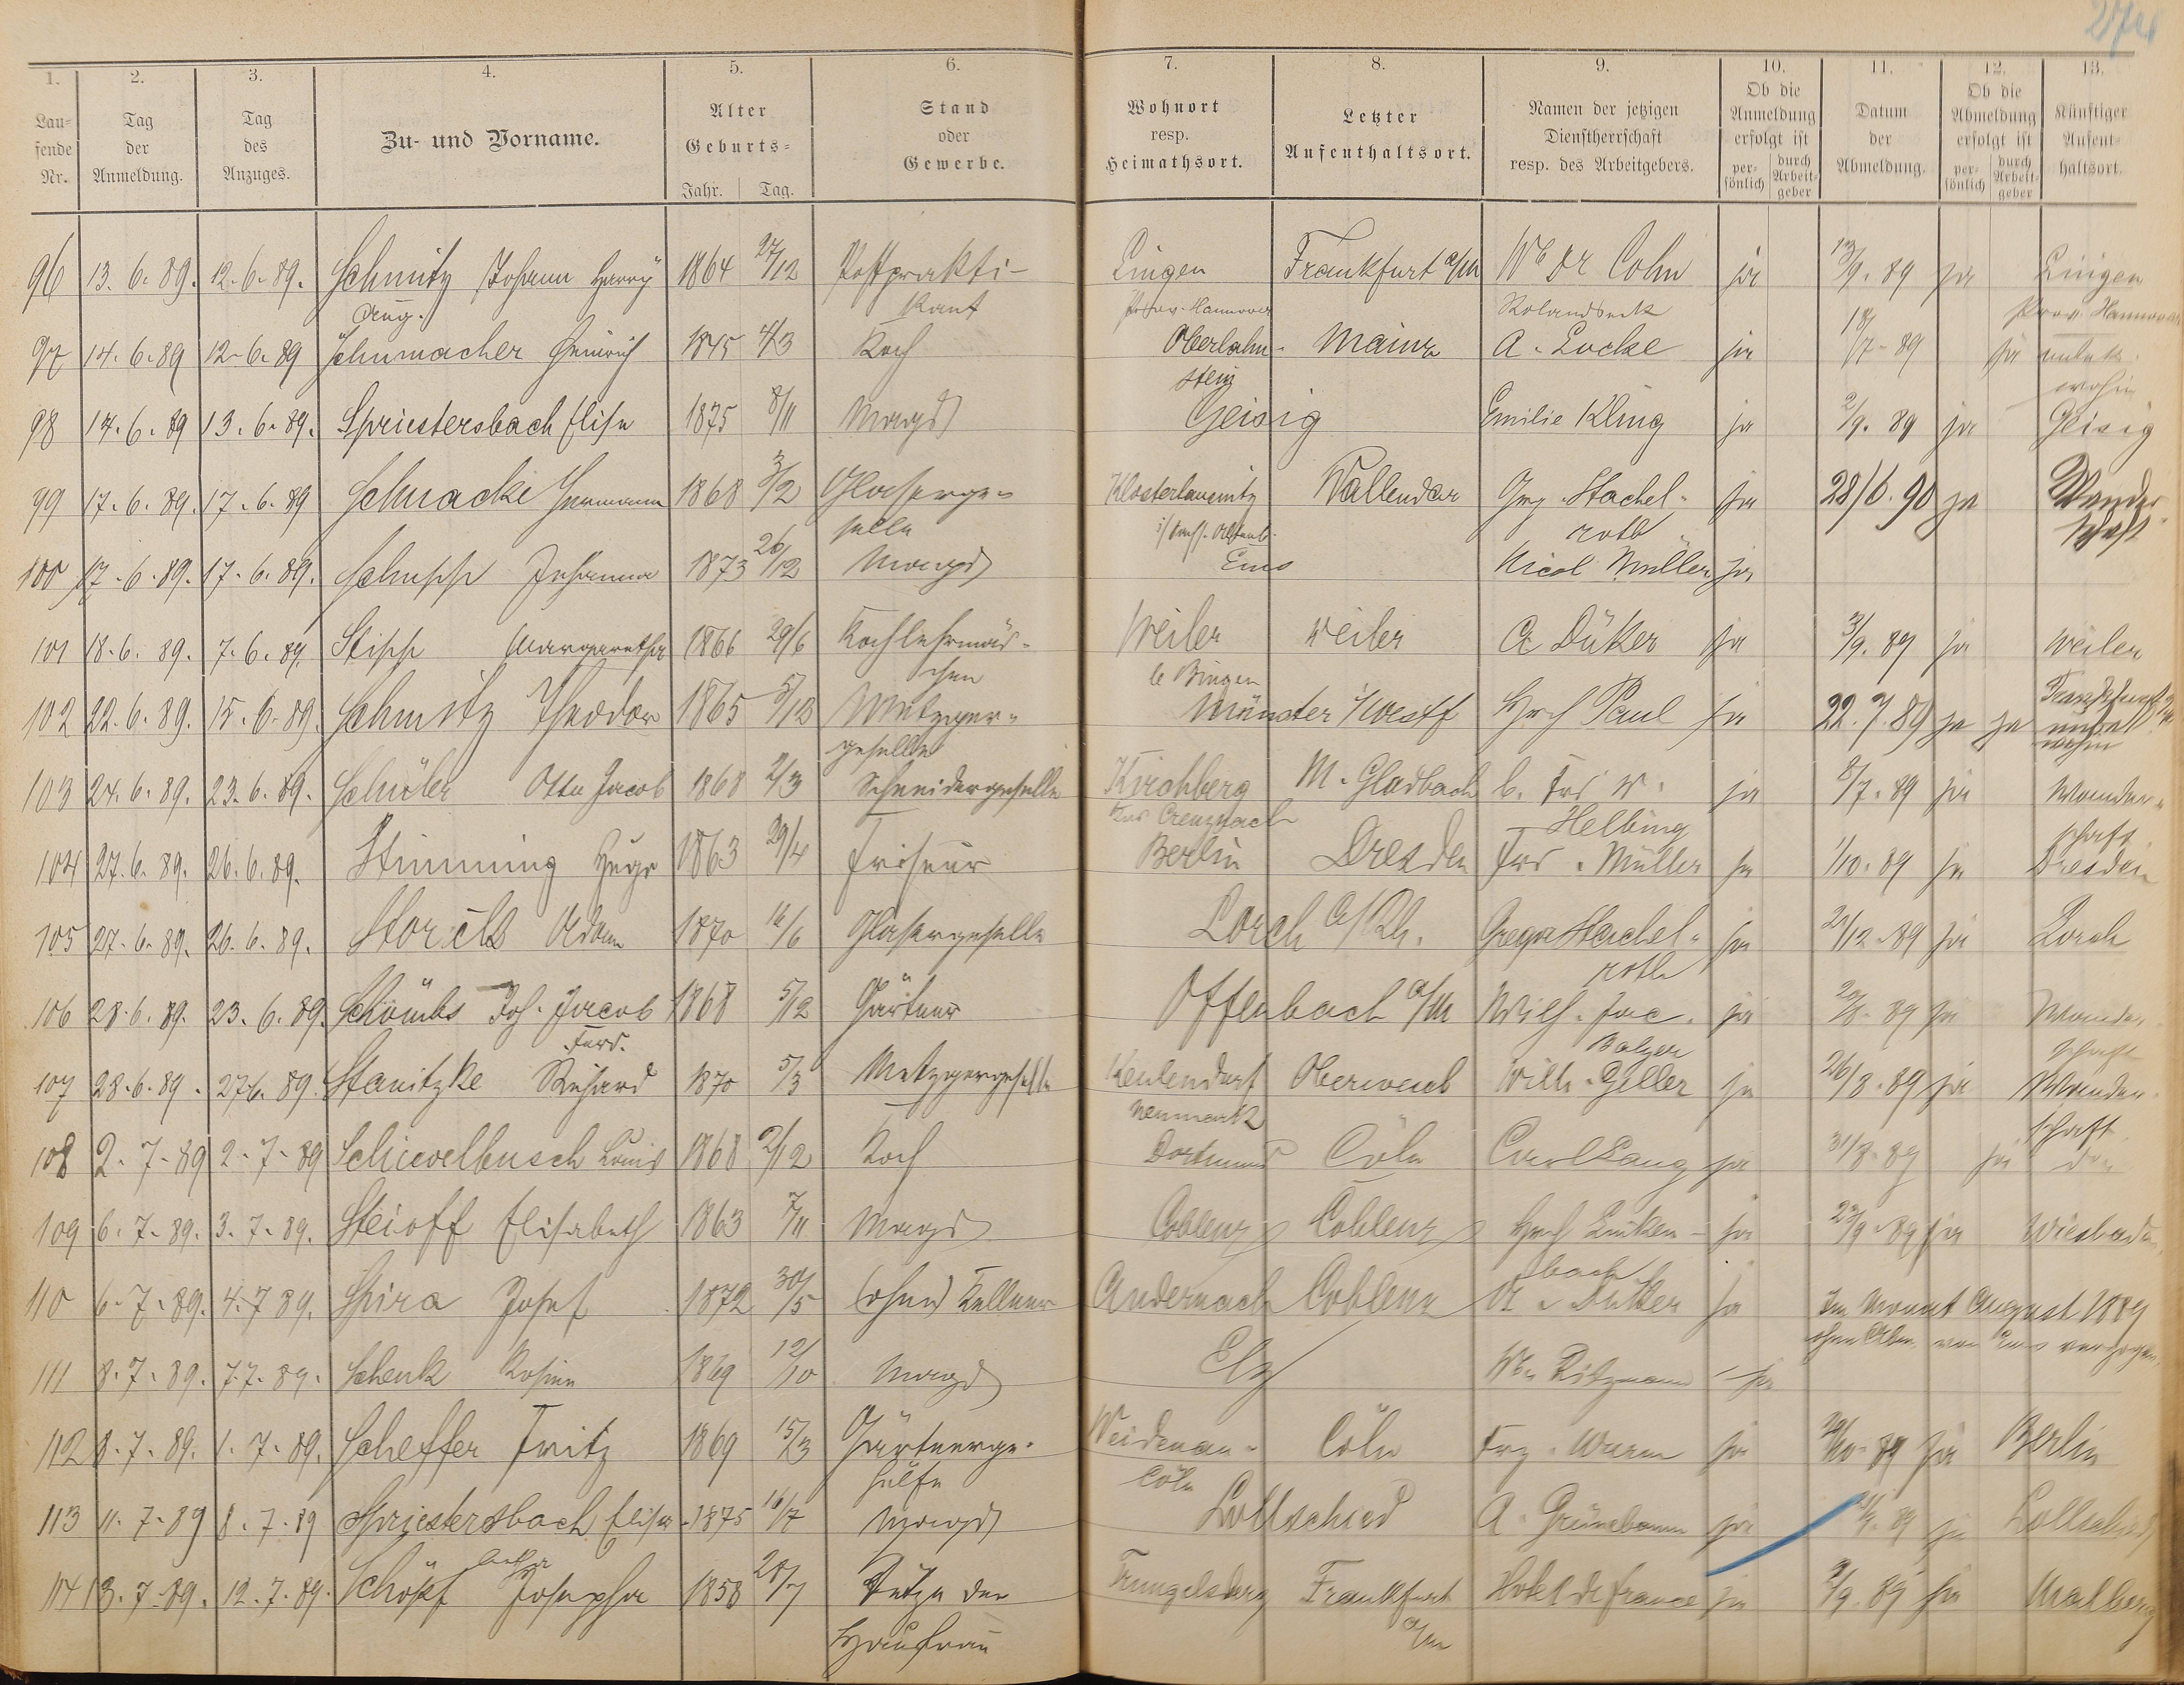 274
1. 2. 3. 4. 5. 6. 7. 8. 9. 10. 11. 12. 13.
Lau-
fende
Nr.
Tag
der
Anmeldung.
Tag
des
Anzuges.
Zu- und Vorname.
Alter
Geburts-
Jahr. Tag.
Stand
oder
Gewerbe.
Wohnort
resp.
Heimathsort.
Letzter
Aufenthaltsort.
Namen der jetzigen
Dienstherrschaft
resp. des Arbeitgebers.
Ob die
Anmeldung
erfolgt ist
per-
sönlich
durch
Arbeit-
geber
Datum
der
Abmeldung.
Ob die
Abmeldung
erfolgt ist
per-
sönlich
durch
Arbeit-
geber
Künftiger
Aufent-
haltsort.
96 13. 6. 89. 12. 6. 89. Schmitz Johann Harry 1864 27/12 Postprakti- Lingen Frankfurt a/M We Dr Cohn ja 13/9. 89 ja Lingen
Aug. kant Prov. Hannover Rolandseck Prov. Hannover
97 14. 6. 89 12. 6. 89 Schumacher Heinrich 1845 4/3 Koch Oberlahn- Mainz A. Locke ja 18/7. 89 ja unbek.
stein wohin
98 14. 6. 89 13. 6. 89. Spriestersbach Elise 1875 8/11 Magd Geisig Emilie Kling ja 2/9. 89 ja Geisig
99 17. 6. 89. 17. 6. 89 Schnacke Hermann 1868 3/2 Glaserge- Klosterlausnitz Vallendar Grg. Stachel- ja 28/6. 90 ja Wander-
selle roth schaft
100 17. 6. 89. 17. 6. 89. Schupp Johanna 1873 26/12 Magd Ems Nicol Müller ja
101 18. 6. 89. 7. 6. 89. Stipp Margaretha 1866 29/6 Kochlehrmäd- Weiler Weiler A Düker ja 3/9. 89 ja Weiler
chen b Bingen
102 22. 6. 89. 15. 6. 89. Schmitz Theodor 1865 5/12 Metzger- Münster i/Westf Hrch Paul ja 22. 7. 89 ja ja
geselle wohin
103 24. 6. 89. 23. 6. 89. Schüler Otto Jacob 1868 2/3 Schneidergeselle Kirchberg M. Gladbach b. Frd W. ja 8/7. 89 ja Wander-
Krs Creuznach Helbing schaft
104 27. 6. 89. 26. 6. 89. Stimming Hugo 1863 29/4 Friseur Berlin Dresden Frd. Müller ja 1/10. 89 ja Dresden
105 27. 6. 89. 26. 6. 89. Storck Adam 1870 16/6 Glasergeselle Lorch a/Rh. Gregor Stachel- ja 21/12. 89 ja Lorch
roth
106 28. 6. 89. 23. 6. 89. Schömbs Joh. Jacob 1868 5/12 Gärtner Offenbach a/M Wilh. Jac. ja 2/8. 89 ja Wander-
Ferd. Balzer schaft
107 28. 6. 89. 27 6. 89. Stanitzke Richard 1870 5/3 Metzgergeselle Keulendorf Oberwesel Wilh. Geller ja 26/8. 89 ja Wander-
Neumarkt schaft
108 2. 7. 89 2. 7. 89 Schievelbusch Louis 1868 2/12 Koch Dortmund Cöln Carl Lang ja 31/8. 89 ja do
109 6. 7. 89. 3. 7. 89. Steioff Elisabeth 1863 7/11 Magd Coblenz Coblenz Hrch Linken- ja 23/9. 89 ja Wiesbaden
bach
110 6. 7. 89. 4. 7 89. Spira Josef 1872 30/5 (ohne) Kellner Andernach Coblenz A. Düker ja Im Monat August 1889
ohne Abm. von Ems verzogen.
111 8. 7. 89. 7. 7. 89. Schenk Rosina 1869 12/10 Magd Elz Wwe Ritzmann ja
112 8. 7. 89. 1. 7. 89. Scheffer Fritz 1869 15/3 Gärtnerge- Weidenau- Cöln Frz. Wurm ja 29/10. 89 ja Berlin
hülfe Cöln
113 11. 7. 89 8. 7. 89 Spriestersbach Elise 1875 16/7 Magd Lollschied A. Grünebaum ja ja Lollschied
114 13. 7. 89. 12. 7. 89. Schöpf Josepha 1858 28/7 Stütze der Frankfurt Hotel de france ja 9/9. 89 ja Malberg
Hausfrau a/M